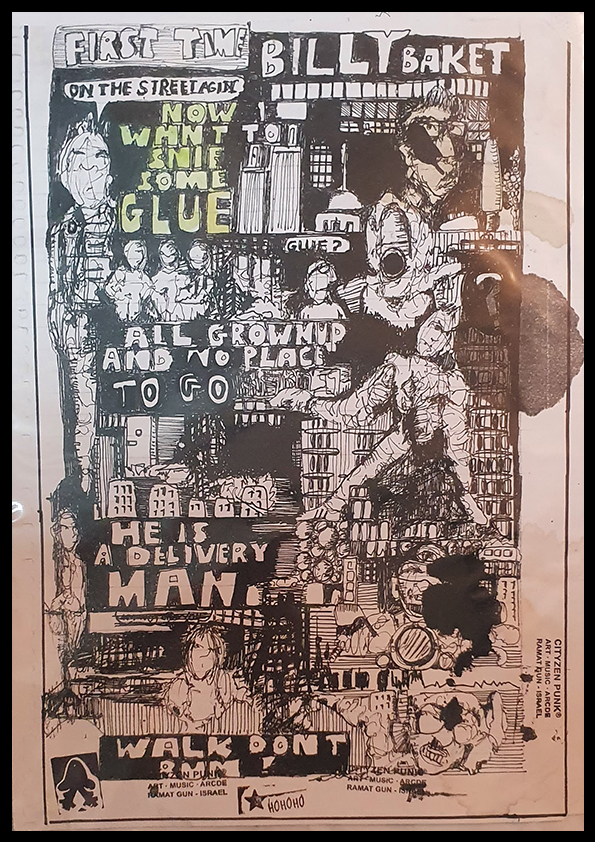 FIRST TIME
BILLY BAKET
ON THE STREET AGIN
NOW
WHNT TO
SNIF
SOME
GLUE
GLUE?
ALL GROWNUP
AND NO PLACE
TO GO
?
HE IS
A DELIVERY
MAN.
WALK DONT
RUN!
CITYZEN PUNK
ART · MUSIC · ARCDE
RAMAT GUN · ISRAEL
HOHOHO
CITYZEN PUNK
ART · MUSIC · ARCDE
RAMAT GUN · ISRAEL
CITYZEN PUNK®
ART · MUSIC · ARCDE
RAMAT GUN · ISRAEL